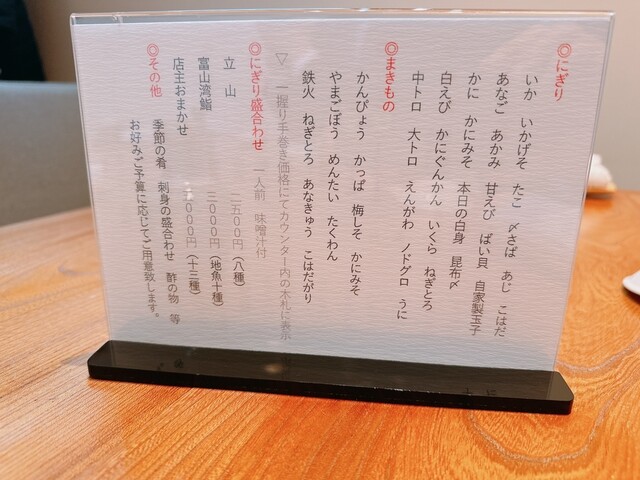 ◎にぎり
いか いかげそ たこ 〆さば あじ こはだ
あなご あかみ 甘えび ばい貝 自家製玉子
かに かにみそ 本日の白身 昆布〆
白えび かにぐんかん いくら ねぎとろ
中トロ 大トロ えんがわ ノドグロ うに
◎まきもの
かんぴょう かっぱ 梅しそ かにみそ
やまごぼう めんたい たくわん
鉄火 ねぎとろ あなきゅう こはだがり
▽ 一握り手巻き価格にてカウンター内の木札に表示
◎にぎり盛合わせ 一人前 味噌汁付
立山 二五〇〇円(八種)
富山湾鮨 (地魚十種)
店主おまかせ (十三種)
◎その他 季節の肴 刺身の盛合わせ 酢の物 等
お好みご予算に応じてご用意致します。